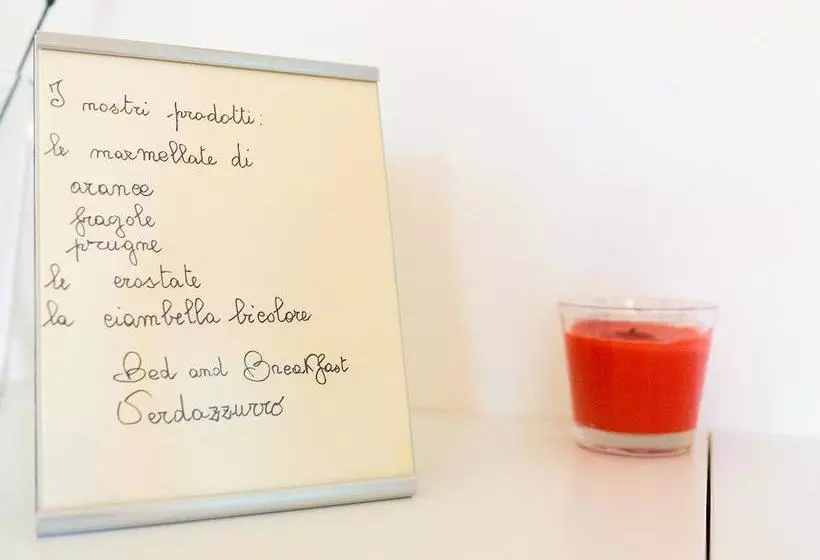 I nostri prodotti:
le marmellate di
arance
fragole
prugne
le crostate
la ciambella bicolore
Bed and Breakfast
Verdazzurró